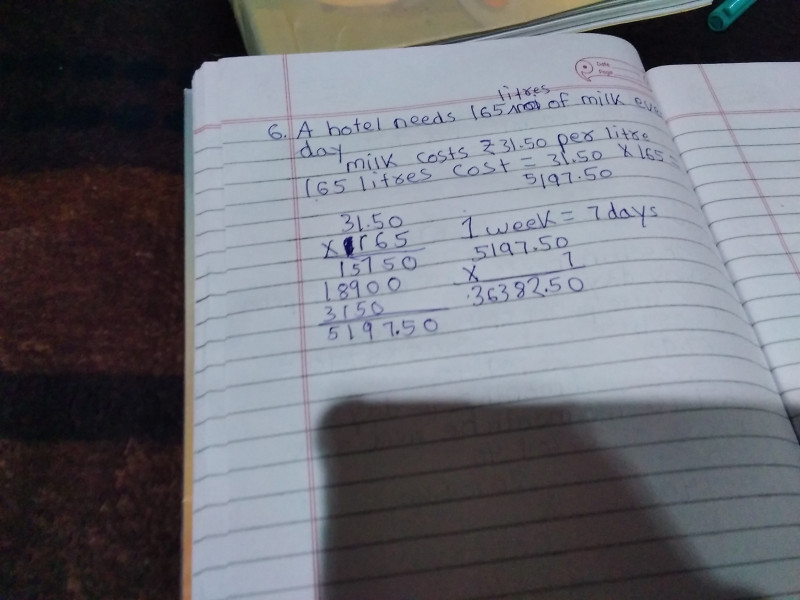 Date
Page
litres
6. A hotel needs 165 of milk eve
day
milk costs ₹31.50 per litre
165 litres cost = 31.50 × 165 =
5197.50
31.50
× 165
15750
18900
3150
5197.50
1 week = 7 days
5197.50
× 7
36382.50